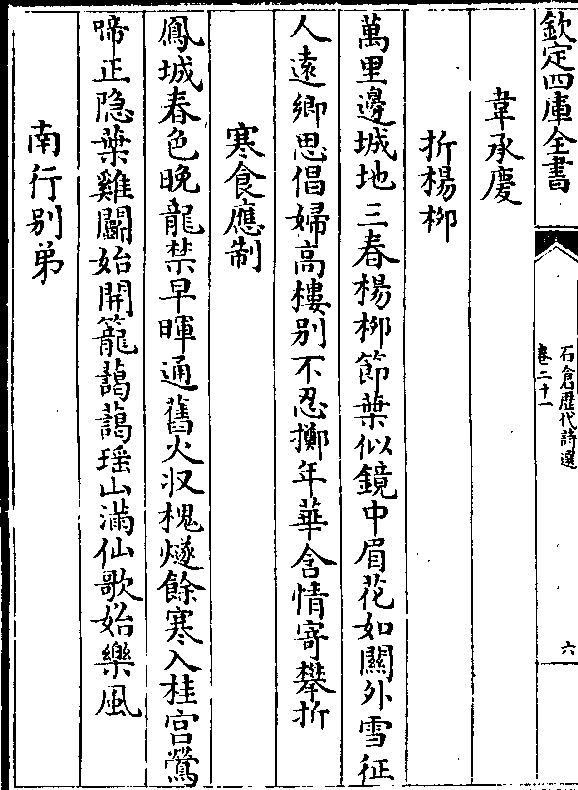 欽定四庫全書
石倉歷代詩選
卷二十一
六
韋承慶
折楊柳
萬里邊城地三春楊柳節葉似鏡中眉花如關外雪征
人遠鄉思倡婦高樓别不忍擲年華含情寄攀折
寒食應制
鳳城春色晚龍禁早暉通舊火収槐燧餘寒入桂宫鶯
啼正隐葉雞鬬始開籠藹藹瑶山滿仙歌始樂風
南行别弟